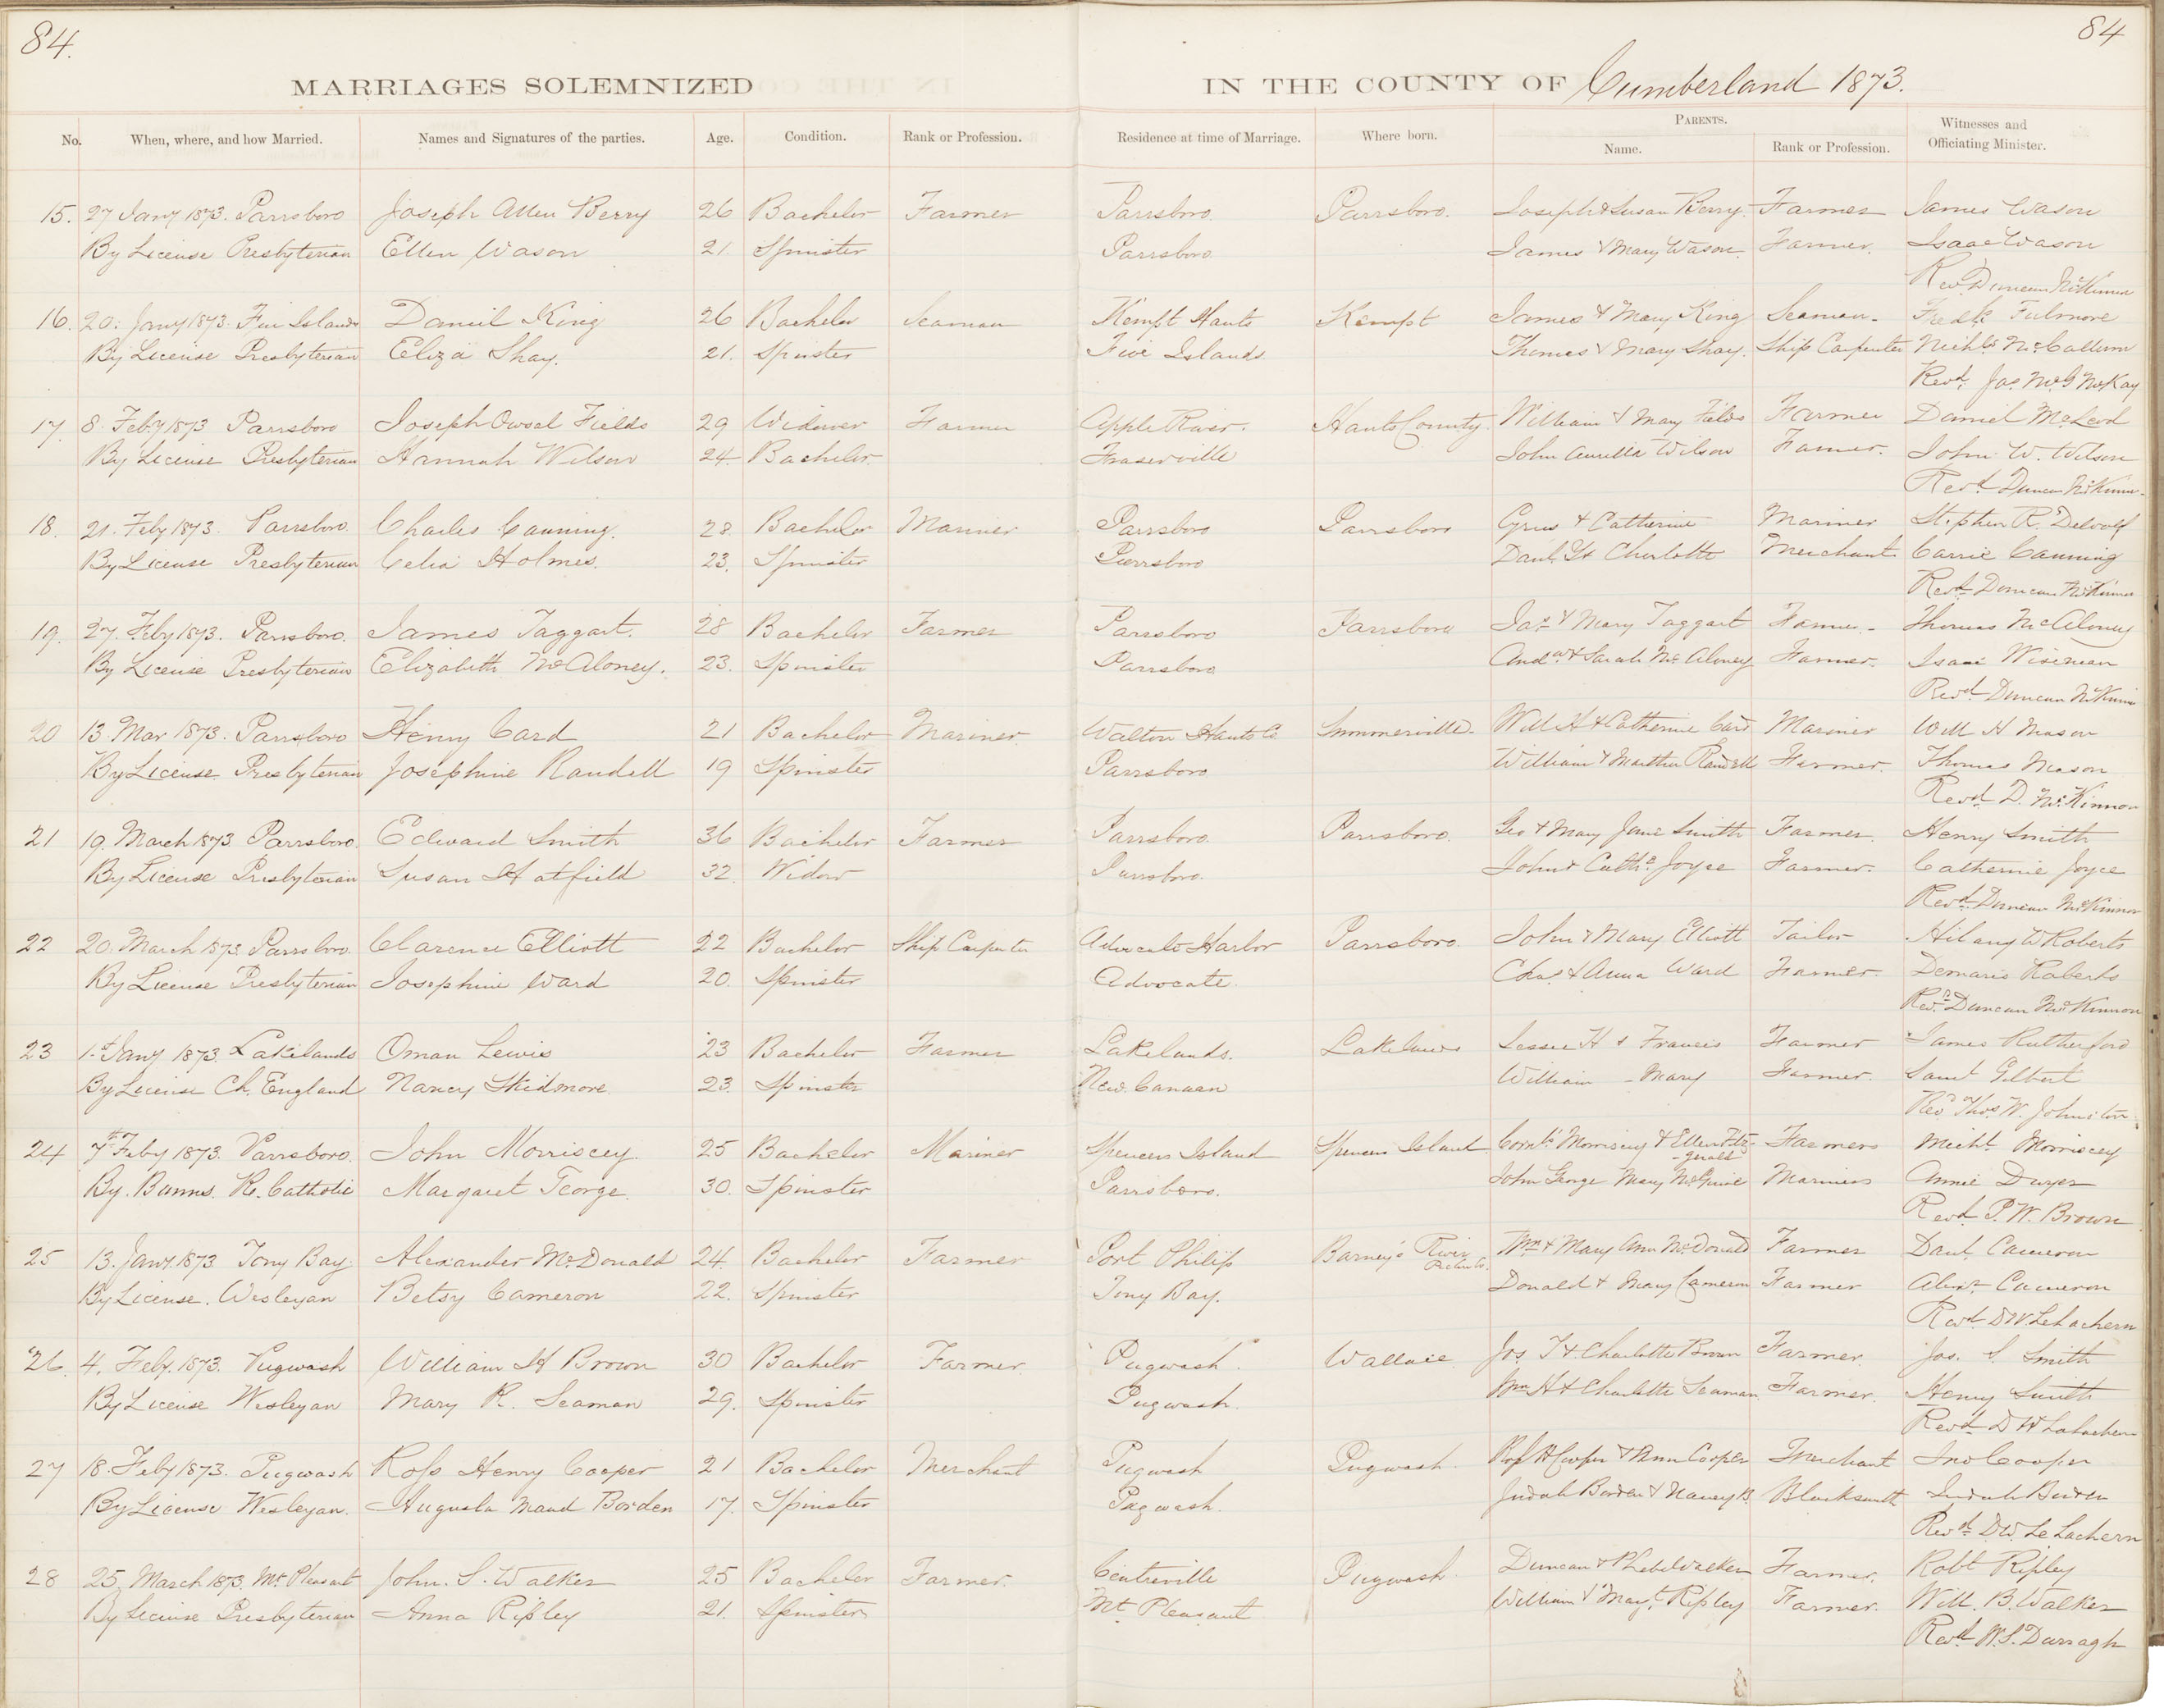 84.
84
MARRIAGES SOLEMNIZED
IN THE COUNTY OF Cumberland 1873.
No. When, where, and how Married. Names and Signatures of the parties. Age. Condition. Rank or Profession. Residence at time of Marriage. Where born. PARENTS. Name. Rank or Profession. Witnesses and Officiating Minister.
15. 27 Jany 1873. Parrsboro Joseph Allen Berry 26 Bachelor Farmer Parrsboro. Parrsboro. Joseph & Susan Berry. Farmer James Wason
By License Presbyterian Ellen Wason 21. Spinster Parrsboro James & Mary Wason. Farmer. Isaac Wason
Rev. Duncan McKinnon
16. 20. Jany 1873. Five Islands Daniel King 26 Bachelor Seaman Kempt Hants Kempt James & Mary King Seaman. Fredk Fulmore
By License Presbyterian Eliza Shay. 21. Spinster Five Islands Thomas & Mary Shay. Ship Carpenter Nichls McCallum
Revd. Jas. McG McKay
17. 8. Feby 1873 Parrsboro Joseph Fields 29 Widower Farmer Apple River. Hants County William & Mary Fields Farmer Daniel McLeod
By License Presbyterian Hannah Wilson 24 Bachelor Fraserville John Wilson Farmer. John W. Wilson
Revd Duncan McKinnon
18. 21. Feby 1873. Parrsboro. Charles Canning. 28. Bachelor Mariner Parrsboro Parrsboro Cyrus & Catherine Mariner Stephen R. Dewolf
By License Presbyterian Celia Holmes. 23. Spinster Parrsboro Danl. & Charlotte Merchant Carrie Canning
Revd. Duncan McKinnon
19. 27. Feby 1873. Parrsboro. James Taggart. 28 Bachelor Farmer Parrsboro Parrsboro Jas. & Mary Taggart Farmer. Thomas McAloney
By License Presbyterian Elizabeth McAloney. 23. Spinster Parrsboro Andw & Sarah McAloney Farmer. Isaac Wiseman
Revd Duncan McKinnon
20 13. Mar 1873. Parrsboro Henry Card 21 Bachelor Mariner Walton Hants Co Summerville. Will H & Catherine Card Mariner Will H Mason
By License Presbyterian Josephine Randell 19 Spinster Parrsboro William & Martha Randell Farmer. Thomas Mason
Revd D. McKinnon
21 19. March 1873 Parrsboro. Edward Smith 36 Bachelor Farmer Parrsboro. Parrsboro. Geo & Mary Jane Smith Farmer. Henry Smith
By License Presbyterian Susan Hatfield 32. Widow Parrsboro. John & Cathe. Joyce Farmer. Catherine Joyce
Revd. Duncan McKinnon
22 20. March 1873. Parrsboro. Clarence Elliott 22 Bachelor Ship Carpenter Advocate Harbor Parrsboro. John & Mary Elliott Tailor Hilany W Roberts
By License Presbyterian Josephine Ward 20. Spinster Advocate. Chas. & Anna Ward Farmer. Demaris Roberts
Revd. Duncan McKinnon
23 1st Jany 1873. Lakelands Oman Lewis 23 Bachelor Farmer Lakelands. Lakelands Jessee H & Francis Farmer James Rutherford
By License Ch. England Nancy Skidmore. 23. Spinster New Canaan William - Mary Farmer. Saml Gilbert
Revd Thos. W. Johnston
24 7th Feby 1873. Parrsboro. John Morriscey. 25 Bachelor Mariner Spencers Island Spencers Island Cornls Morriscey & Ellen Fitz-gerald Farmers Michl. Morriscey
By. Banns. R. Catholic Margaret George. 30. Spinster Parrsboro. John George Mary McGuire Mariners Annie Dwyer
Revd. P. W. Brown
25 13. Jany. 1873 Tony Bay. Alexander McDonald 24. Bachelor Farmer Port Philip Barney's River Pictou Co. Wm & Mary Ann McDonald Farmer Danl. Cameron
By License. Wesleyan Betsy Cameron 22. Spinster Tony Bay. Donald & Mary Cameron Farmer Alexr. Cameron
Revd. D W LeLachern
26. 4. Feby. 1873. Pugwash William H Brown 30 Bachelor Farmer. Pugwash. Wallace Jos. T & Charlotte Brown Farmer. Jos. S. Smith
By License Wesleyan Mary R. Seaman 29. Spinster Pugwash. Wm H & Charlotte Seaman Farmer. Henry Smith
Revd D W LeLachern
27 18. Feby 1873. Pugwash Ross Henry Cooper 21 Bachelor Merchant Pugwash Pugwash Ross H Cooper & Ann Cooper Merchant Jno Cooper
By License Wesleyan. Augusta Maud Borden 17. Spinster Pugwash. Judah Borden & Nancy B. Blacksmith Judah Borden
Revd. D.W. Le Lachern
28 25. March 1873. Mt. Pleasant John. S. Walker 25 Bachelor Farmer. Centreville Pugwash. Duncan & Phebe Walker Farmer. Robt Ripley
By License Presbyterian Anna Ripley 21. Spinster Mt. Pleasant William & Mary. Ripley Farmer. Will. B. Walker
Revd. W. S. Darragh